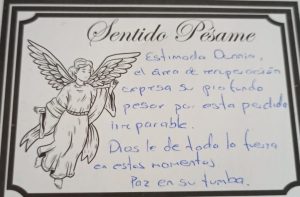 Sentido Pésame
Estimada Dunnia,
el área de recuperación
expresa su profundo
pesar por esta perdida
irreparable.
Dios le de todo la fuerza
en estos momentos
Paz en su tumba.